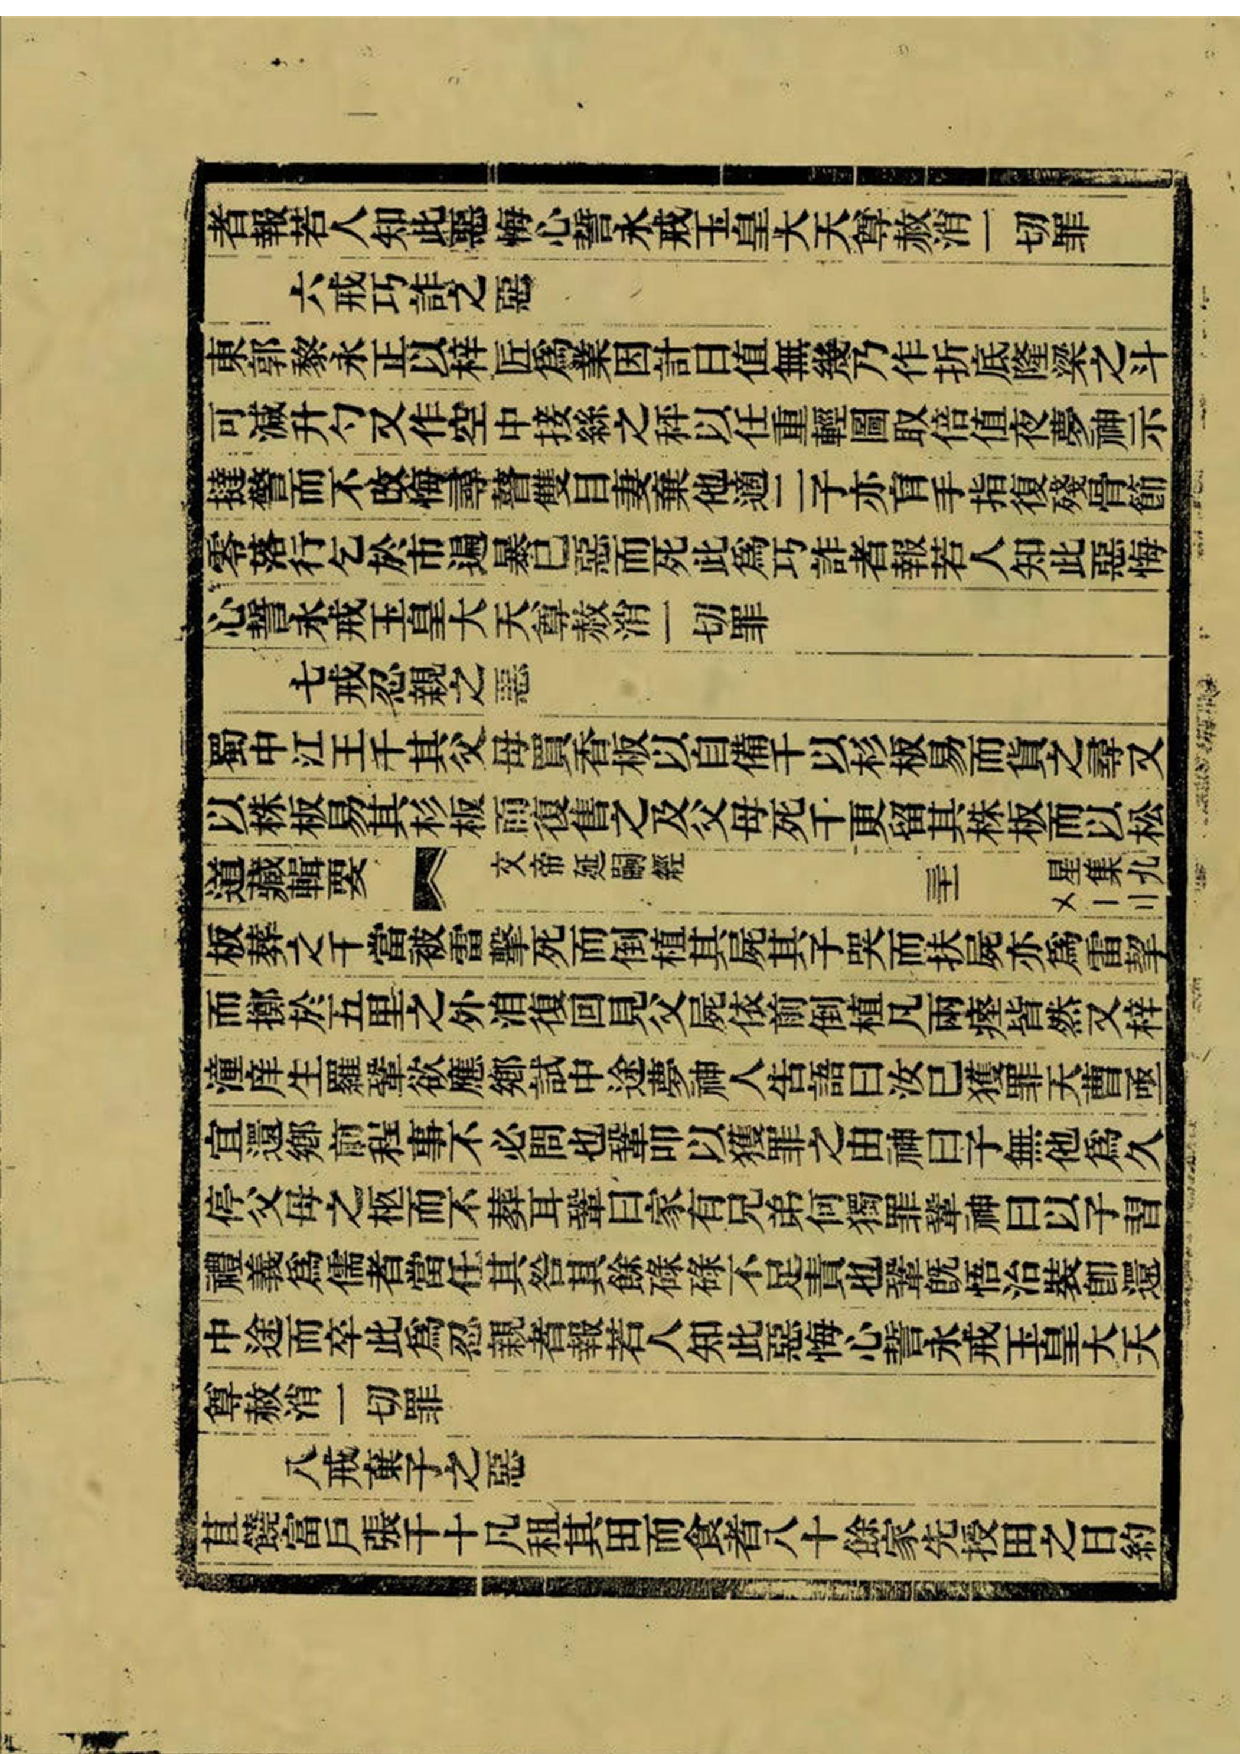 者報若人知此惡悔心誓永戒玉皇大天尊赦消一切罪
六戒巧詐之惡
東郭黎永正以梓匠為業因計日值無幾乃作折底隆梁之斗
可減升勺又作空中接絲之秤以任重輕圖取倍值夜夢神示
撻警而不改悔尋瞽雙目妻棄他適二子亦盲手指復殘骨節
零落行乞於市遍暴已惡而死此為巧詐者報若人知此惡悔
心誓永戒玉皇大天尊赦消一切罪
七戒忍親之惡
蜀中江王千其父母買香板以自備千以杉板易而貨之尋又
以株板易其杉板而復售之及父母死千更留其株板而以松
道藏輯要 文帝延嗣經 三十二 星集九
板葬之千當被雷擊死而倒植其屍其子哭而扶屍亦為雷挈
而擲於五里之外洎復回見父屍依前倒植凡兩瘞皆然又梓
潼庠生羅鞏欲應鄉試中途夢神人告語曰汝已獲罪天曹亟
宜還鄉前程事不必問也鞏叩以獲罪之由神曰子無他為久
停父母之柩而不葬耳鞏曰家有兄弟何獨罪鞏神曰以子習
禮義為儒者當任其咎其餘碌碌不足責也鞏既悟治裝卽還
中途而卒此為忍親者報若人知此惡悔心誓永戒玉皇大天
尊赦消一切罪
八戒棄子之惡
甚饒富戶張千十凡租其田而食者八十餘家先授田之日約